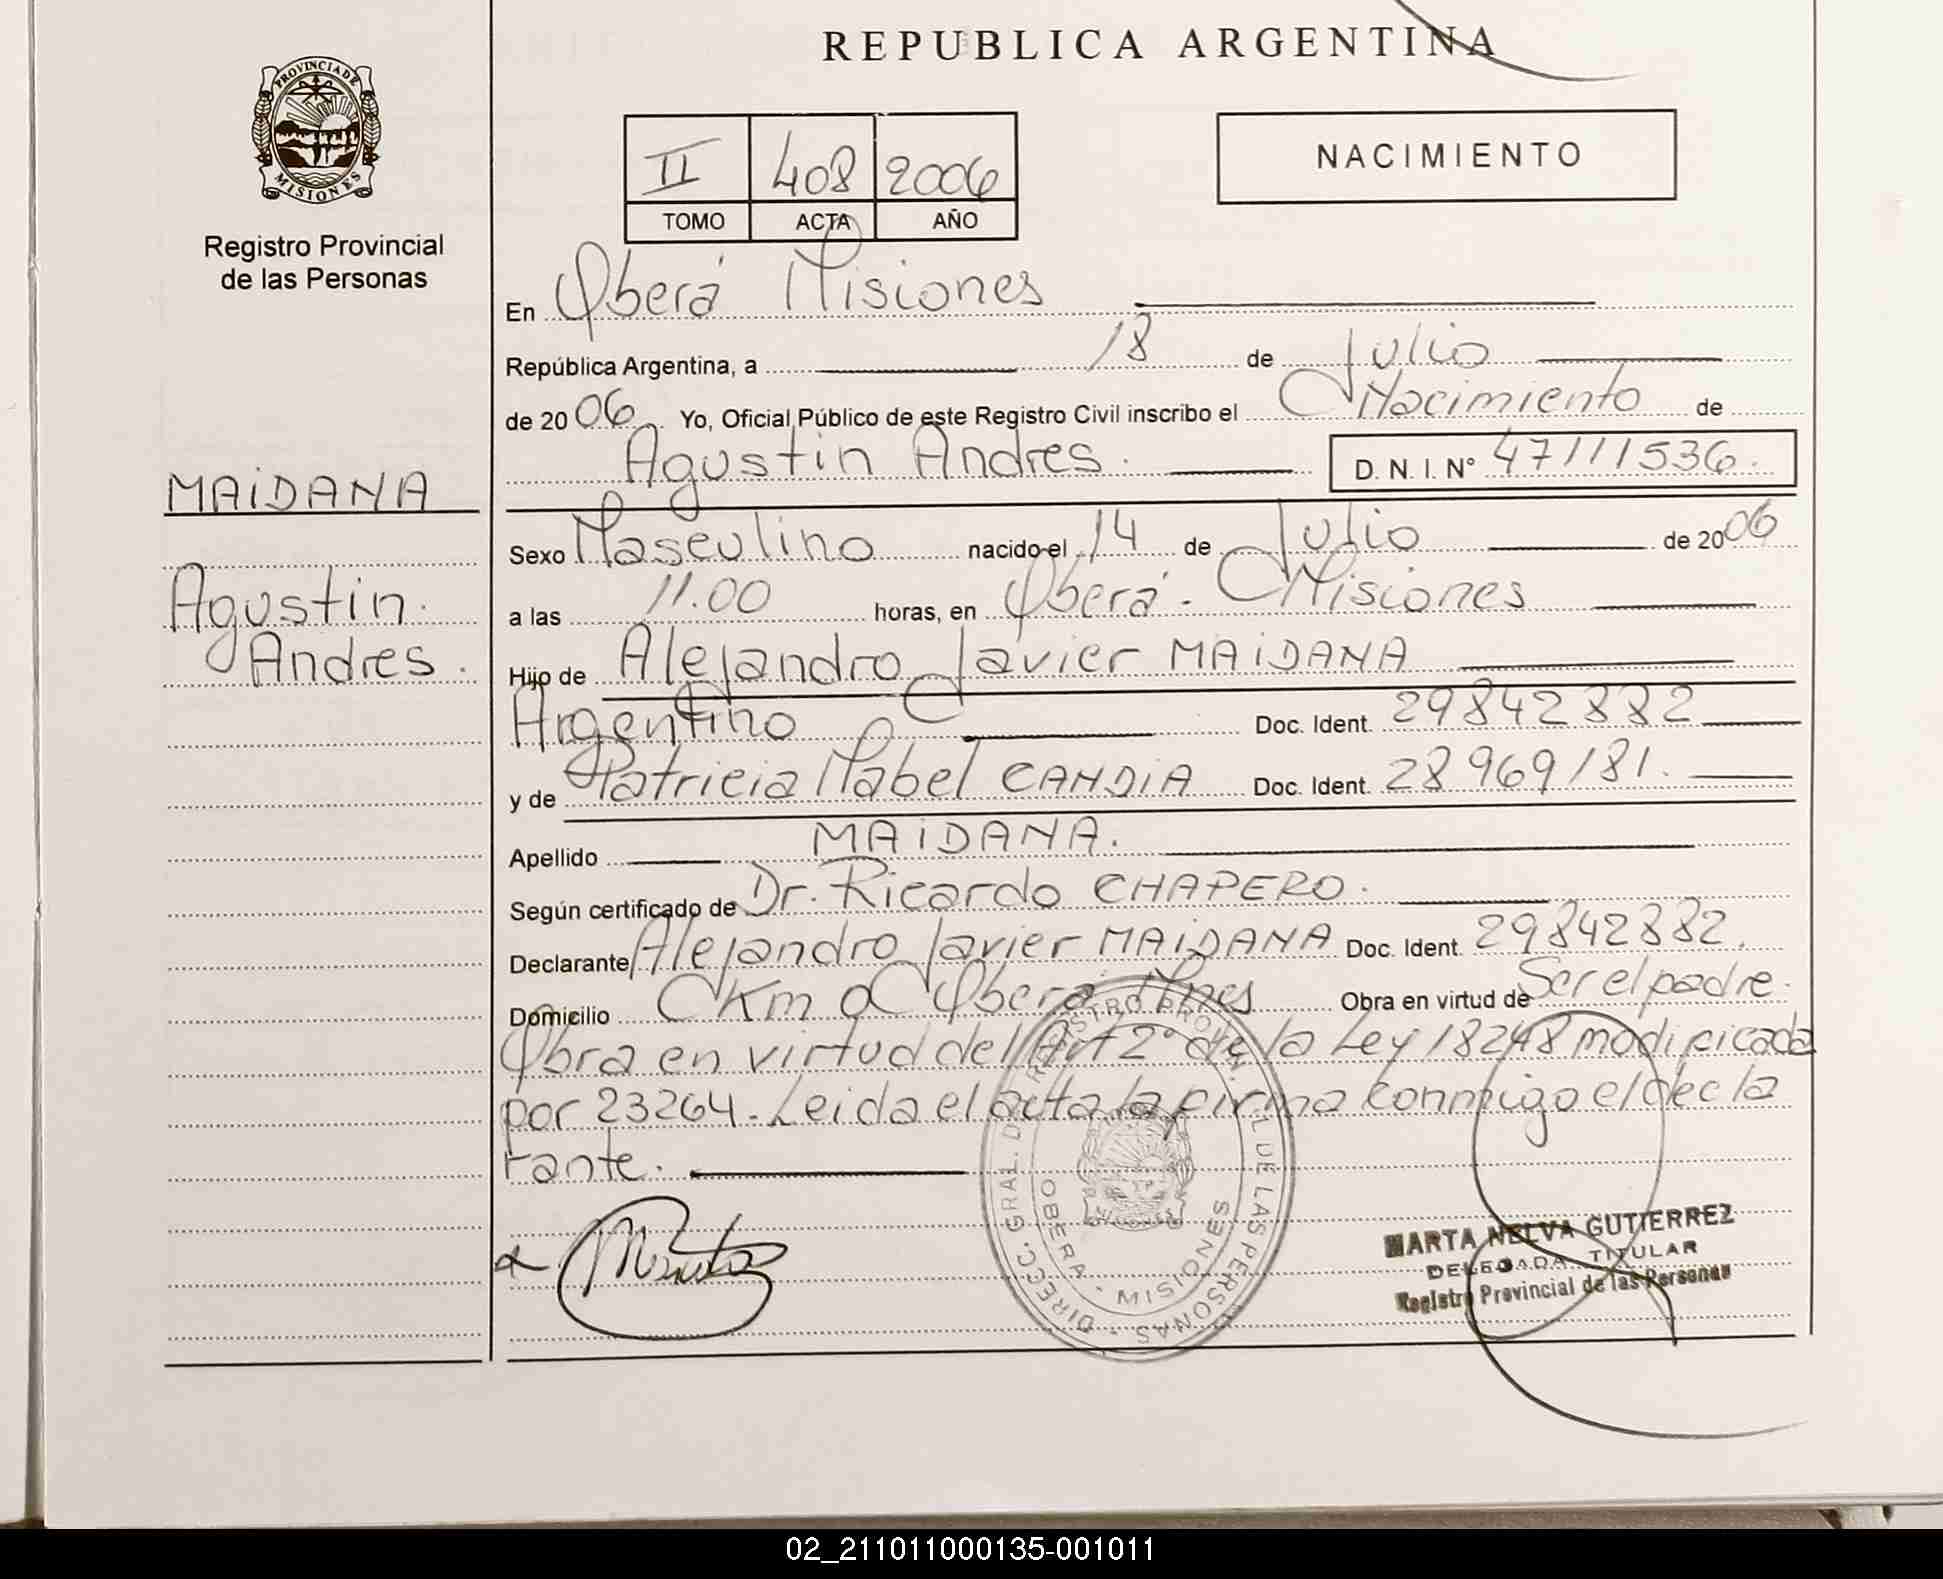 REPUBLICA ARGENTINA
PROVINCIA DE
MISIONES
Registro Provincial
de las Personas
II 408 2006
TOMO ACTA AÑO
NACIMIENTO
En Oberá Misiones
República Argentina, a 18 de Julio
de 2006 Yo, Oficial Público de este Registro Civil inscribo el Nacimiento de
Agustin Andres. D. N. I. N° 47111536.
MAiDANA
Agustin
Andres.
Sexo Masculino nacido el 14 de Julio de 2006
a las 11.00 horas, en Oberá - Misiones
Hijo de Alejandro Javier MAiDANA
Argentino Doc. Ident. 29842882
y de Patricia Mabel CANDiA Doc. Ident. 28969181.
Apellido MAiDANA.
Según certificado de Dr. Ricardo CHAPERO.
Declarante Alejandro Javier MAiDANA Doc. Ident. 29842882.
Domicilio Km 0 Oberá Mnes Obra en virtud de Ser el padre.
Obra en virtud del Art 2° de la Ley 18248 modificada
por 23264. Leida el acta la firma conmigo el decla
rante.
DIRECC. GRAL. DE REGISTRO PROVIN. DE LAS PERSONAS
OBERA - MISIONES
MARTA NELVA GUTIERREZ
DELEGADA TITULAR
Registro Provincial de las Personas
02_211011000135-001011